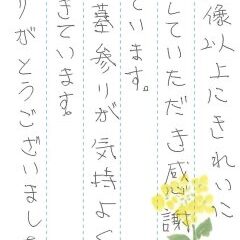 像以上にきれいに
していただき感謝
ています。
墓参りが気持よく
きています。
りがとうございまし